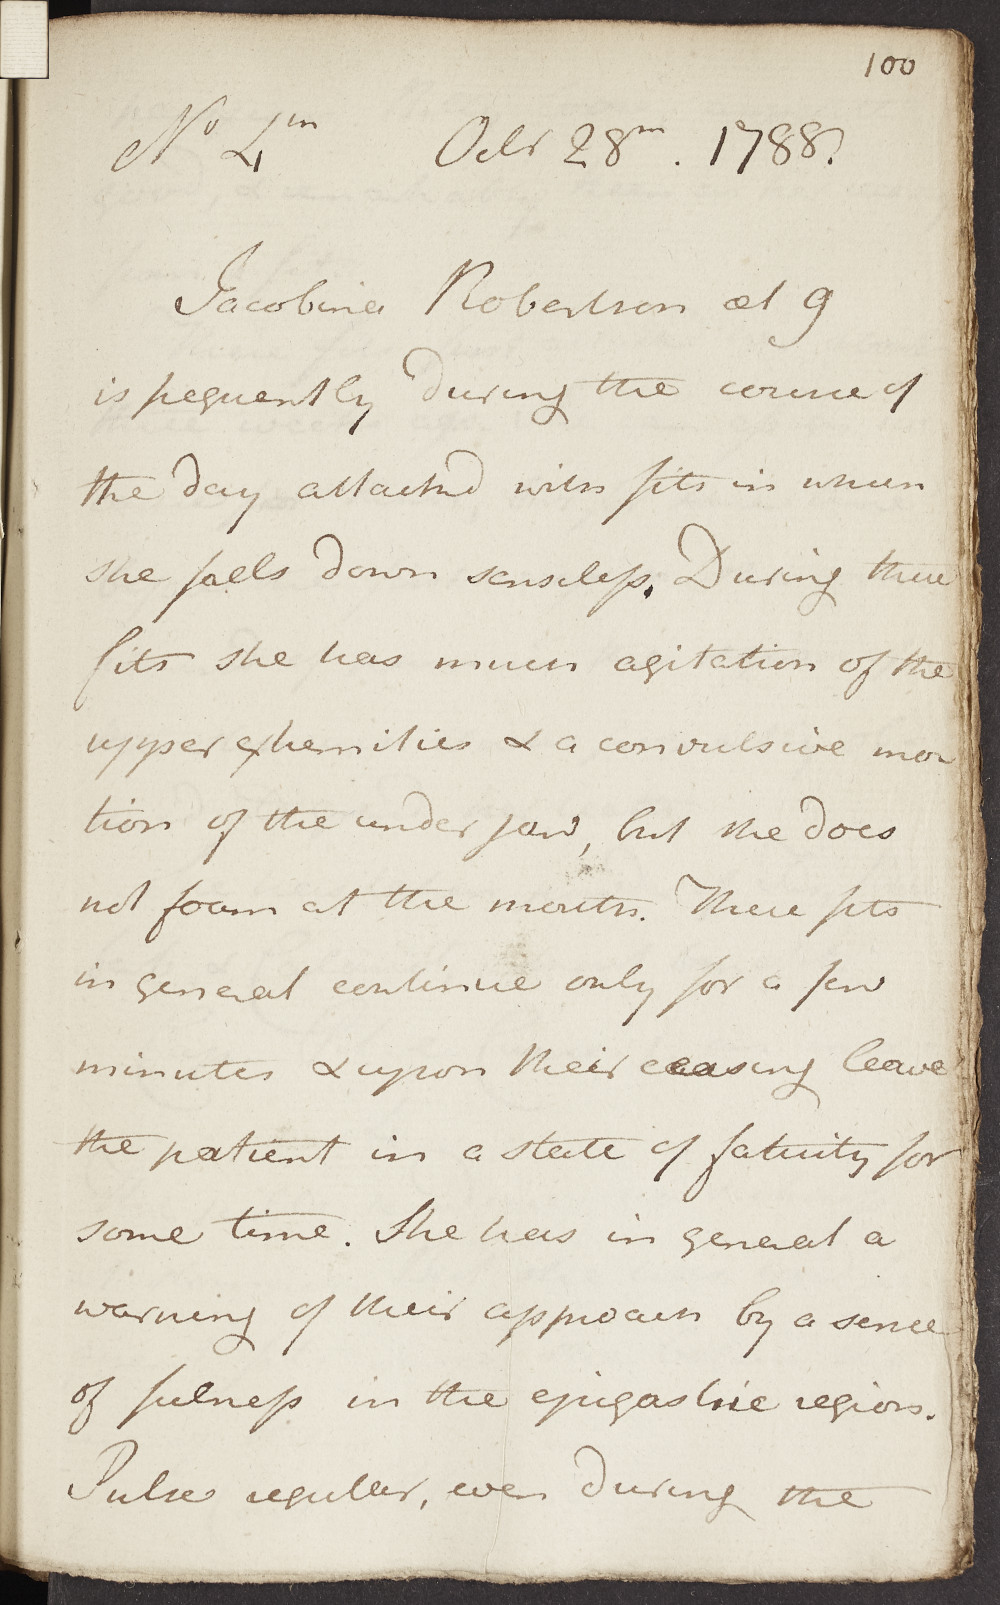 100
No 4th Octr 28th. 1788.
Jacobina Robertson æt 9
is frequently during the course of
the day attacked with fits in which
she falls down senseless. During these
fits she has much agitation of the
upper extremities & a convulsive mo-
tion of the under jaw, but she does
not foam at the mouth. These fits
in general continue only for a few
minutes & upon their ceasing leave
the patient in a state of fatuity for
some time. She has in general a
warning of their approach by a sense
of fulness in the epigastric region.
Pulse regular, even during the